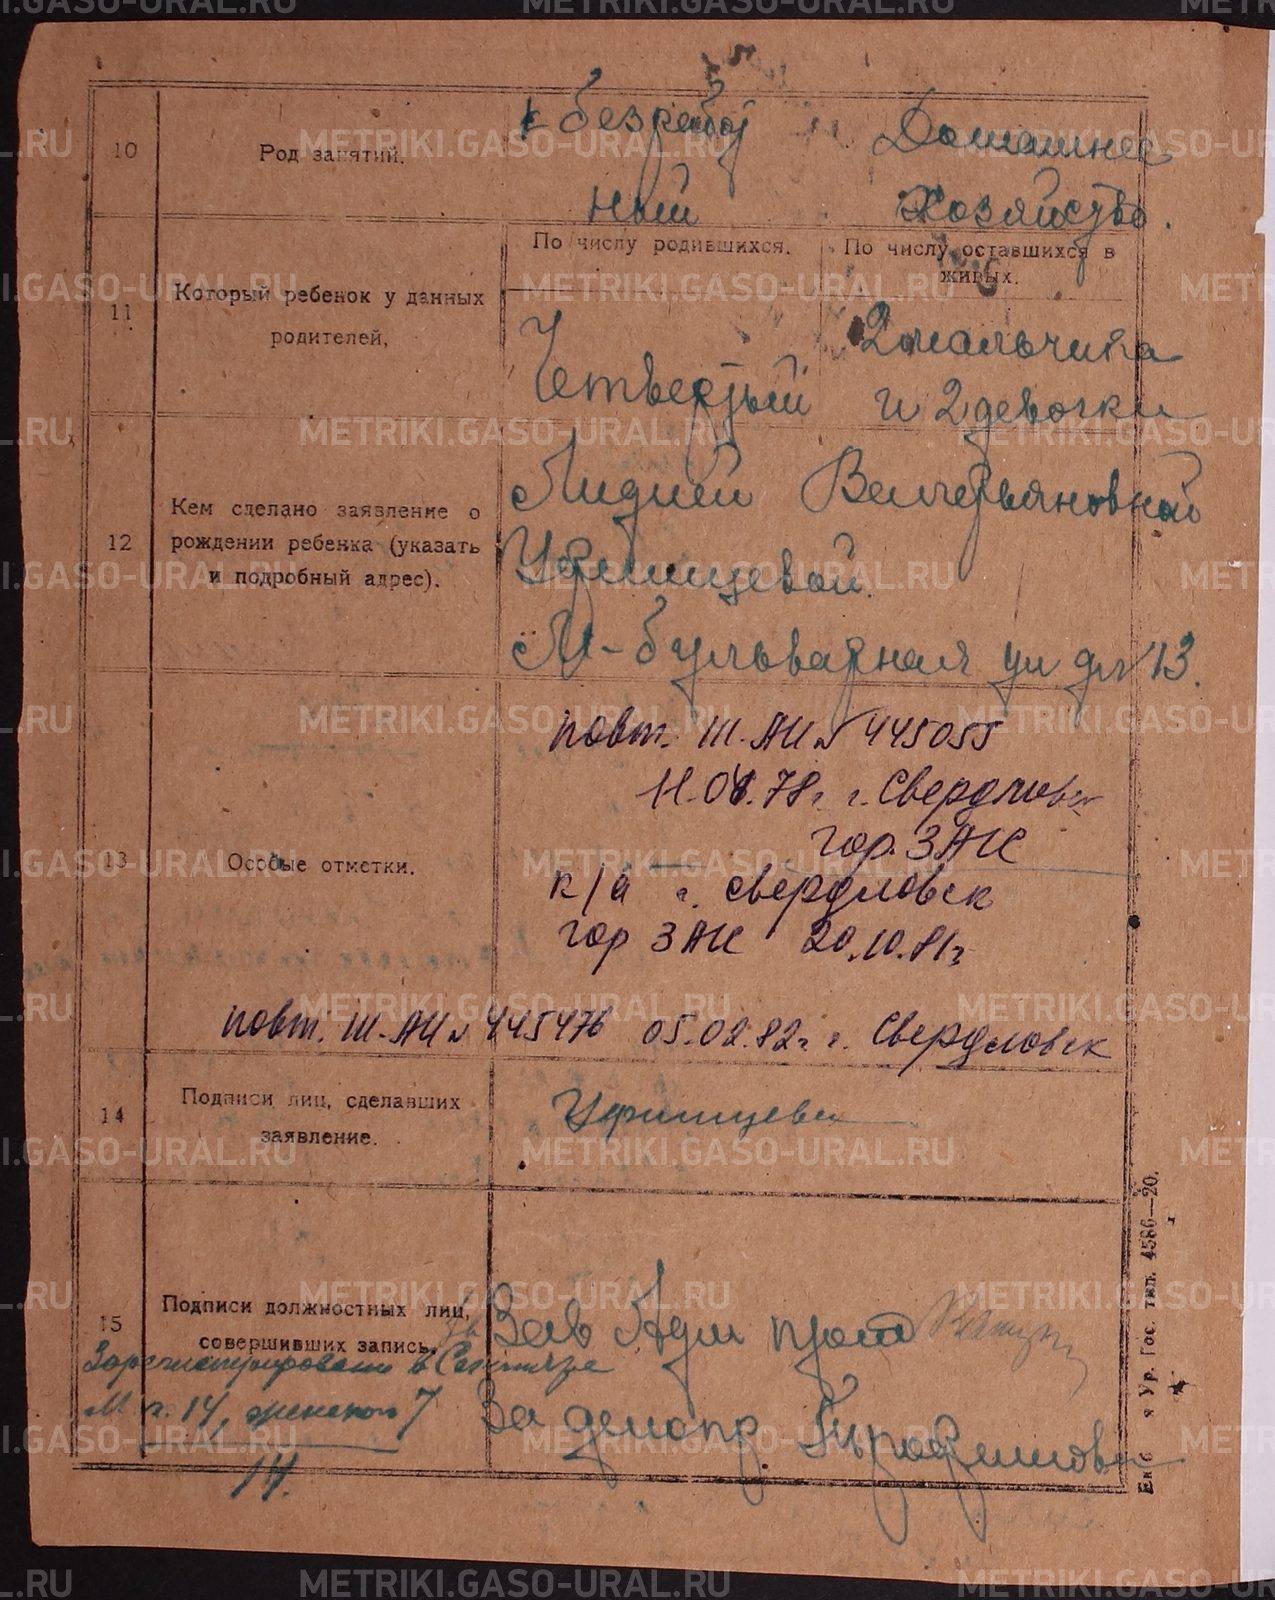 10 Род занятий. безработ Домашнее
ный хозяйство.
11 Который ребенок у данных родителей,
По числу родившихся. По числу оставшихся в живых.
Четвертый 2 мальчика
и 2 девочки
12 Кем сделано заявление о рождении ребенка (указать и подробный адрес).
Лидией Валерьяновной
Уфимцевой.
М-бульварная ул д№ 13.
13 Особые отметки.
повт. III-АИ № 445055
г. Свердловск
гор. ЗАГС
к/а г. Свердловск
гор ЗАГС 20.10.81г
повт. III-АИ № 445476 05.02.82г. г. Свердловск
14 Подписи лиц, сделавших заявление.
Уфимцева
15 Подписи должностных лиц, совершивших запись.
Зав
За делопр
Зарегистрировано в
М п. 14, женского 7
14.
Екб я Ур. Гос. тип. 4586—20.
METRIKI.GASO-URAL.RU